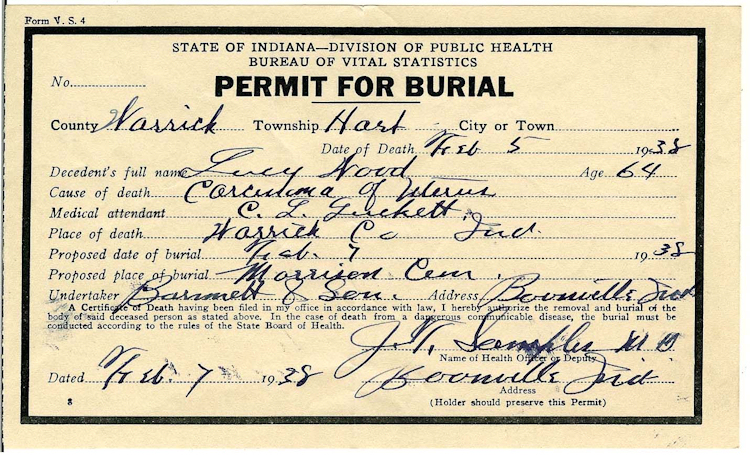 Form V. S. 4
STATE OF INDIANA—DIVISION OF PUBLIC HEALTH
BUREAU OF VITAL STATISTICS
No.
PERMIT FOR BURIAL
County Warrick Township Hart City or Town
Date of Death Feb 5 1938
Decedent's full name Lucy Wood Age 64
Cause of death Carcinoma of Uterus
Medical attendant C. L. Luckett
Place of death Warrick Co Ind.
Proposed date of burial Feb. 7 1938
Proposed place of burial Morrison Cem.
Undertaker & Son. Address Boonville Ind
A Certificate of Death having been filed in my office in accordance with law, I hereby authorize the removal and burial of the
body of said deceased person as stated above. In the case of death from a dangerous communicable disease, the burial must be
conducted according to the rules of the State Board of Health.
J. T. Samples M D
Name of Health Officer or Deputy
Dated Feb. 7 1938 Boonville Ind
Address
8 (Holder should preserve this Permit)